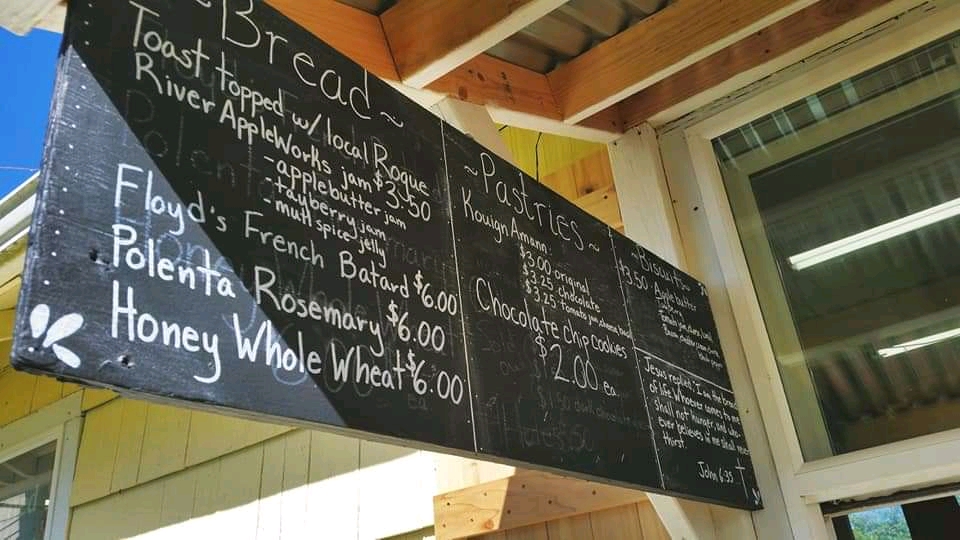 ~Bread~
Toast topped w/ local Rogue
River AppleWorks jam $3.50
-applebutter jam
-tayberry jam
-mutt spice jelly
Floyd's French Batard $6.00
Polenta Rosemary $6.00
Honey Whole Wheat $6.00
~Pastries~
Kouign Amann:
$3.00 original
$3.25 chocolate
$3.25 tomato jam, cheese, basil
Chocolate chip cookies
$2.00 ea.
$3.50 Apple butter
Tomato jam,
Jesus replied: "I am the bread
of life. Whoever comes to me
shall not hunger, and who-
ever believes in me shall never
thirst.
John 6:35